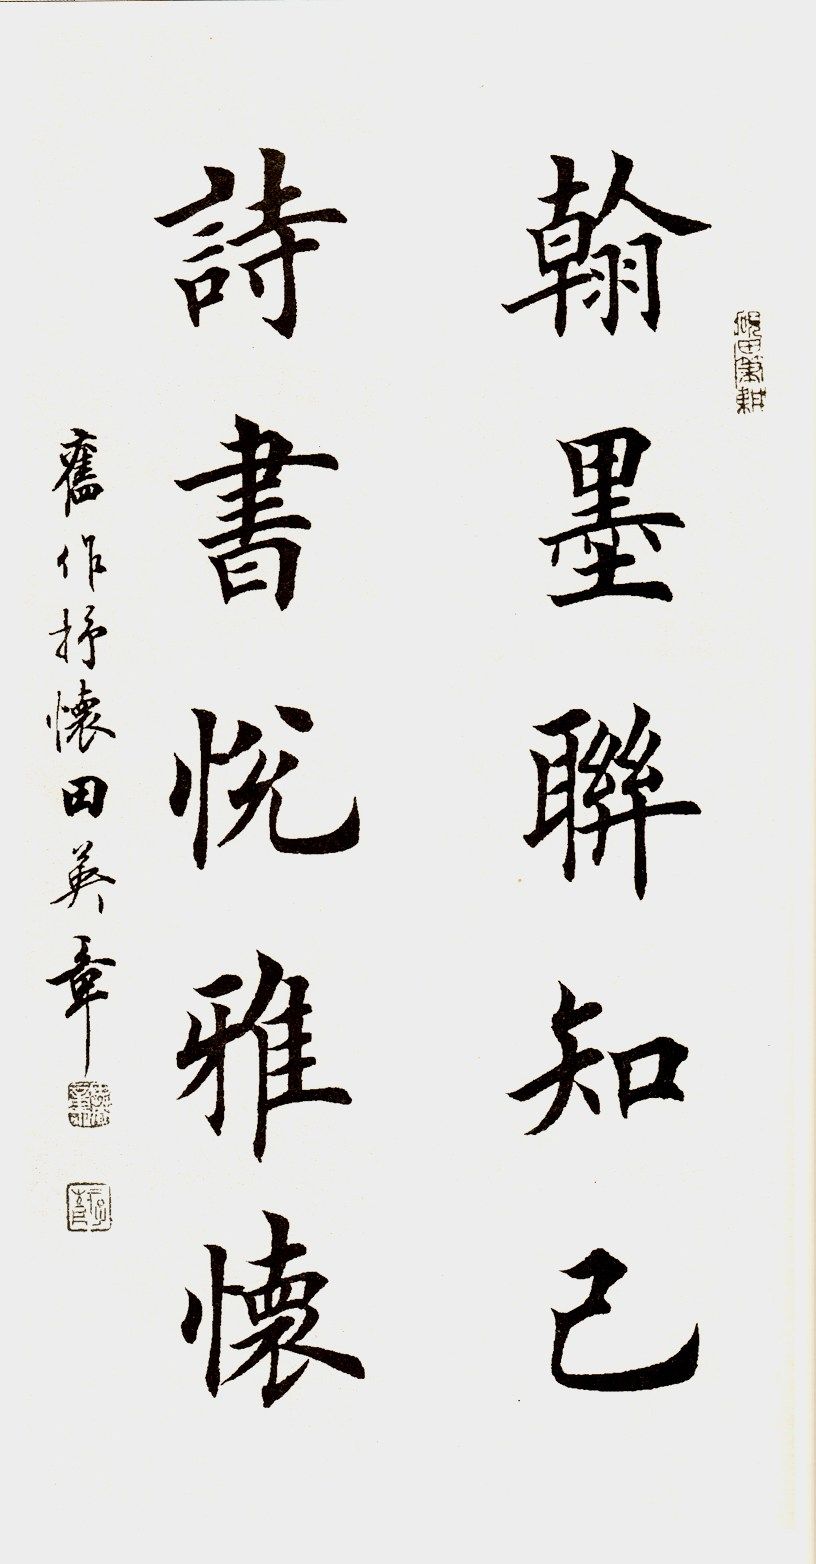 翰墨聯知己
詩書悦雅懷
舊作抒懷田英章